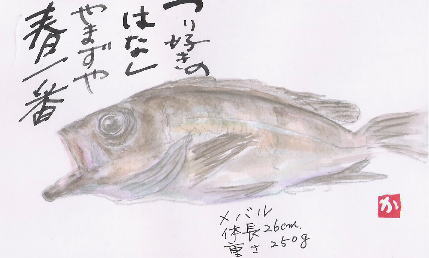 つり好きの
はなし
やまずや
春一番
メバル
体長26cm.
重さ250g
か